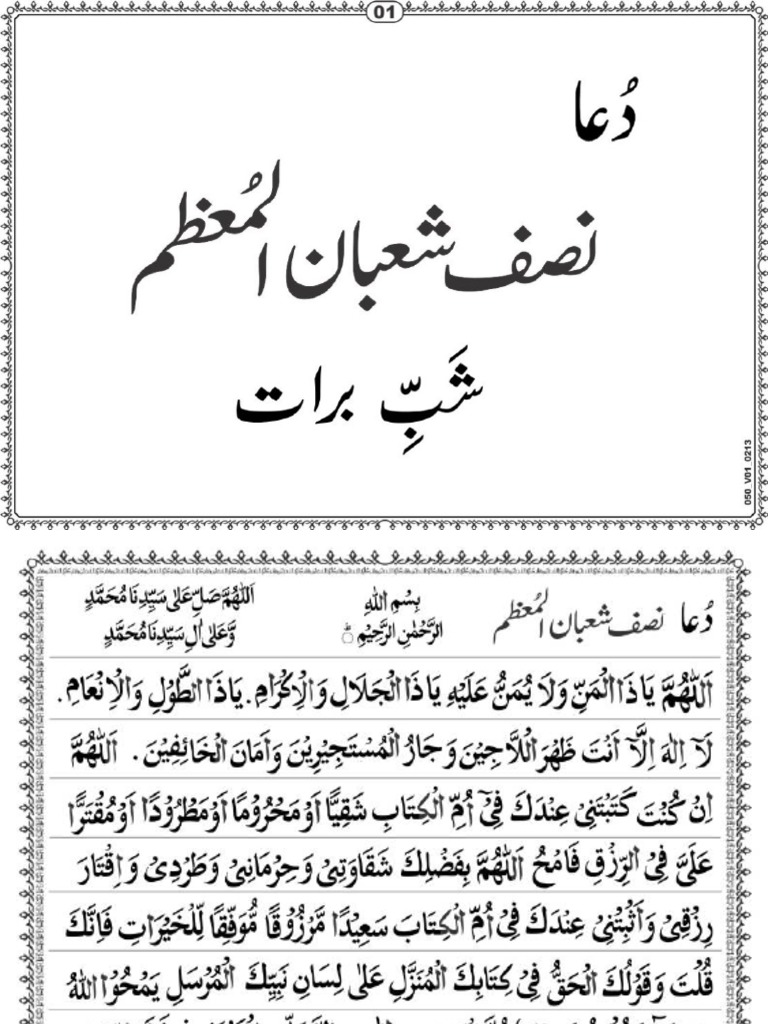 01
دُعا
نصف شعبان المُعظم
شَبِّ برات
050_V01_0213
دُعا نصف شعبان المُعظم
بِسْمِ اللهِ
الرَّحْمٰنِ الرَّحِيْمِ
اَللّٰهُمَّ صَلِّ عَلٰى سَيِّدِنَا مُحَمَّدٍ
وَّعَلٰى اٰلِ سَيِّدِنَا مُحَمَّدٍ
اَللّٰهُمَّ يَا ذَا الْمَنِّ وَلَا يُمَنُّ عَلَيْهِ يَا ذَا الْجَلَالِ وَالْاِكْرَامِ. يَا ذَا الطَّوْلِ وَالْاِنْعَامِ.
لَآ اِلٰهَ اِلَّآ اَنْتَ ظَهْرَ اللَّاجِيْنَ وَجَارُ الْمُسْتَجِيْرِيْنَ وَاَمَانَ الْخَائِفِيْنَ. اَللّٰهُمَّ
اِنْ كُنْتَ كَتَبْتَنِيْ عِنْدَكَ فِيْٓ اُمِّ الْكِتَابِ شَقِيًّا اَوْ مَحْرُوْمًا اَوْ مَطْرُوْدًا اَوْ مُقْتَرًّا
عَلَيَّ فِي الرِّزْقِ فَامْحُ اَللّٰهُمَّ بِفَضْلِكَ شَقَاوَتِيْ وَحِرْمَانِيْ وَطَرْدِيْ وَاِقْتَارَ
رِزْقِيْ وَاَثْبِتْنِيْ عِنْدَكَ فِيْٓ اُمِّ الْكِتَابِ سَعِيْدًا مَّرْزُوْقًا مُّوَفَّقًا لِّلْخَيْرَاتِ فَاِنَّكَ
قُلْتَ وَقَوْلُكَ الْحَقُّ فِيْ كِتَابِكَ الْمُنَزَّلِ عَلٰى لِسَانِ نَبِيِّكَ الْمُرْسَلِ يَمْحُوا اللهُ